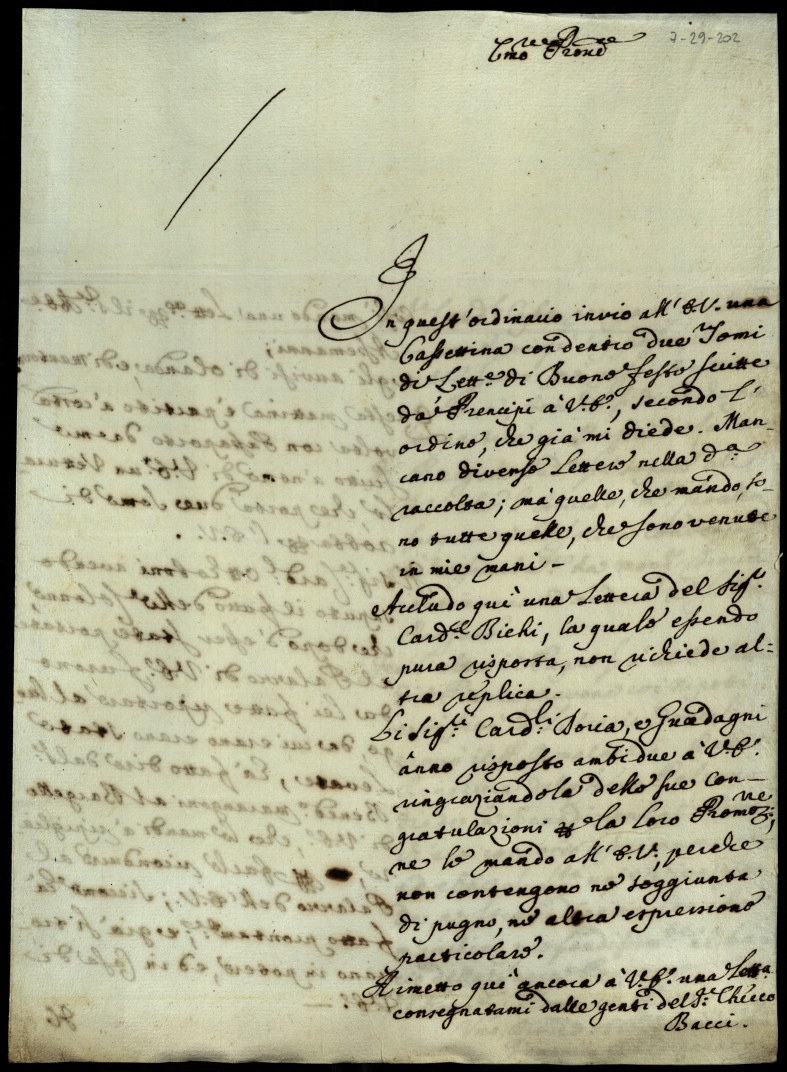 7-29-202
Emo Prone
In quest'ordinario invio all' E.V. una
Cassettina con dentro due Tomi
di Lett.e di Buone feste scritte
da' Prencipi à V.E., secondo l'
ordine, che già mi diede. Man-
cano diverse lettere nella d.a
raccolta; mà quelle, che mando, so-
no tutte quelle, che sono venute
in mie mani -
Accludo qui una Lettera del Sig.r
Card.le Bichi, la quale essendo
pura risposta, non richiede al=
tra replica.
Li Sig.ri Card.li Doria, e Guadagni
anno risposto ambidue à V.E.
ringraziandola delle sue con-
gratulazioni per la loro Promoz.ne,
ne le mando all' E.V., perche
non contengono ne soggiunta
di pugno, ne altra espressione
particolare.
Rimetto qui ancora à V.E. una Lett.a
consegnatami dalle genti del S.r Checco
Bacci.